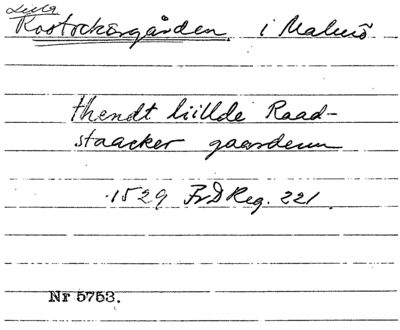 Lilla
Rostockargården i Malmö
thendt liillde Raad-
staacker gaardenn
1529 FrDReg. 221.
Nr 5753.